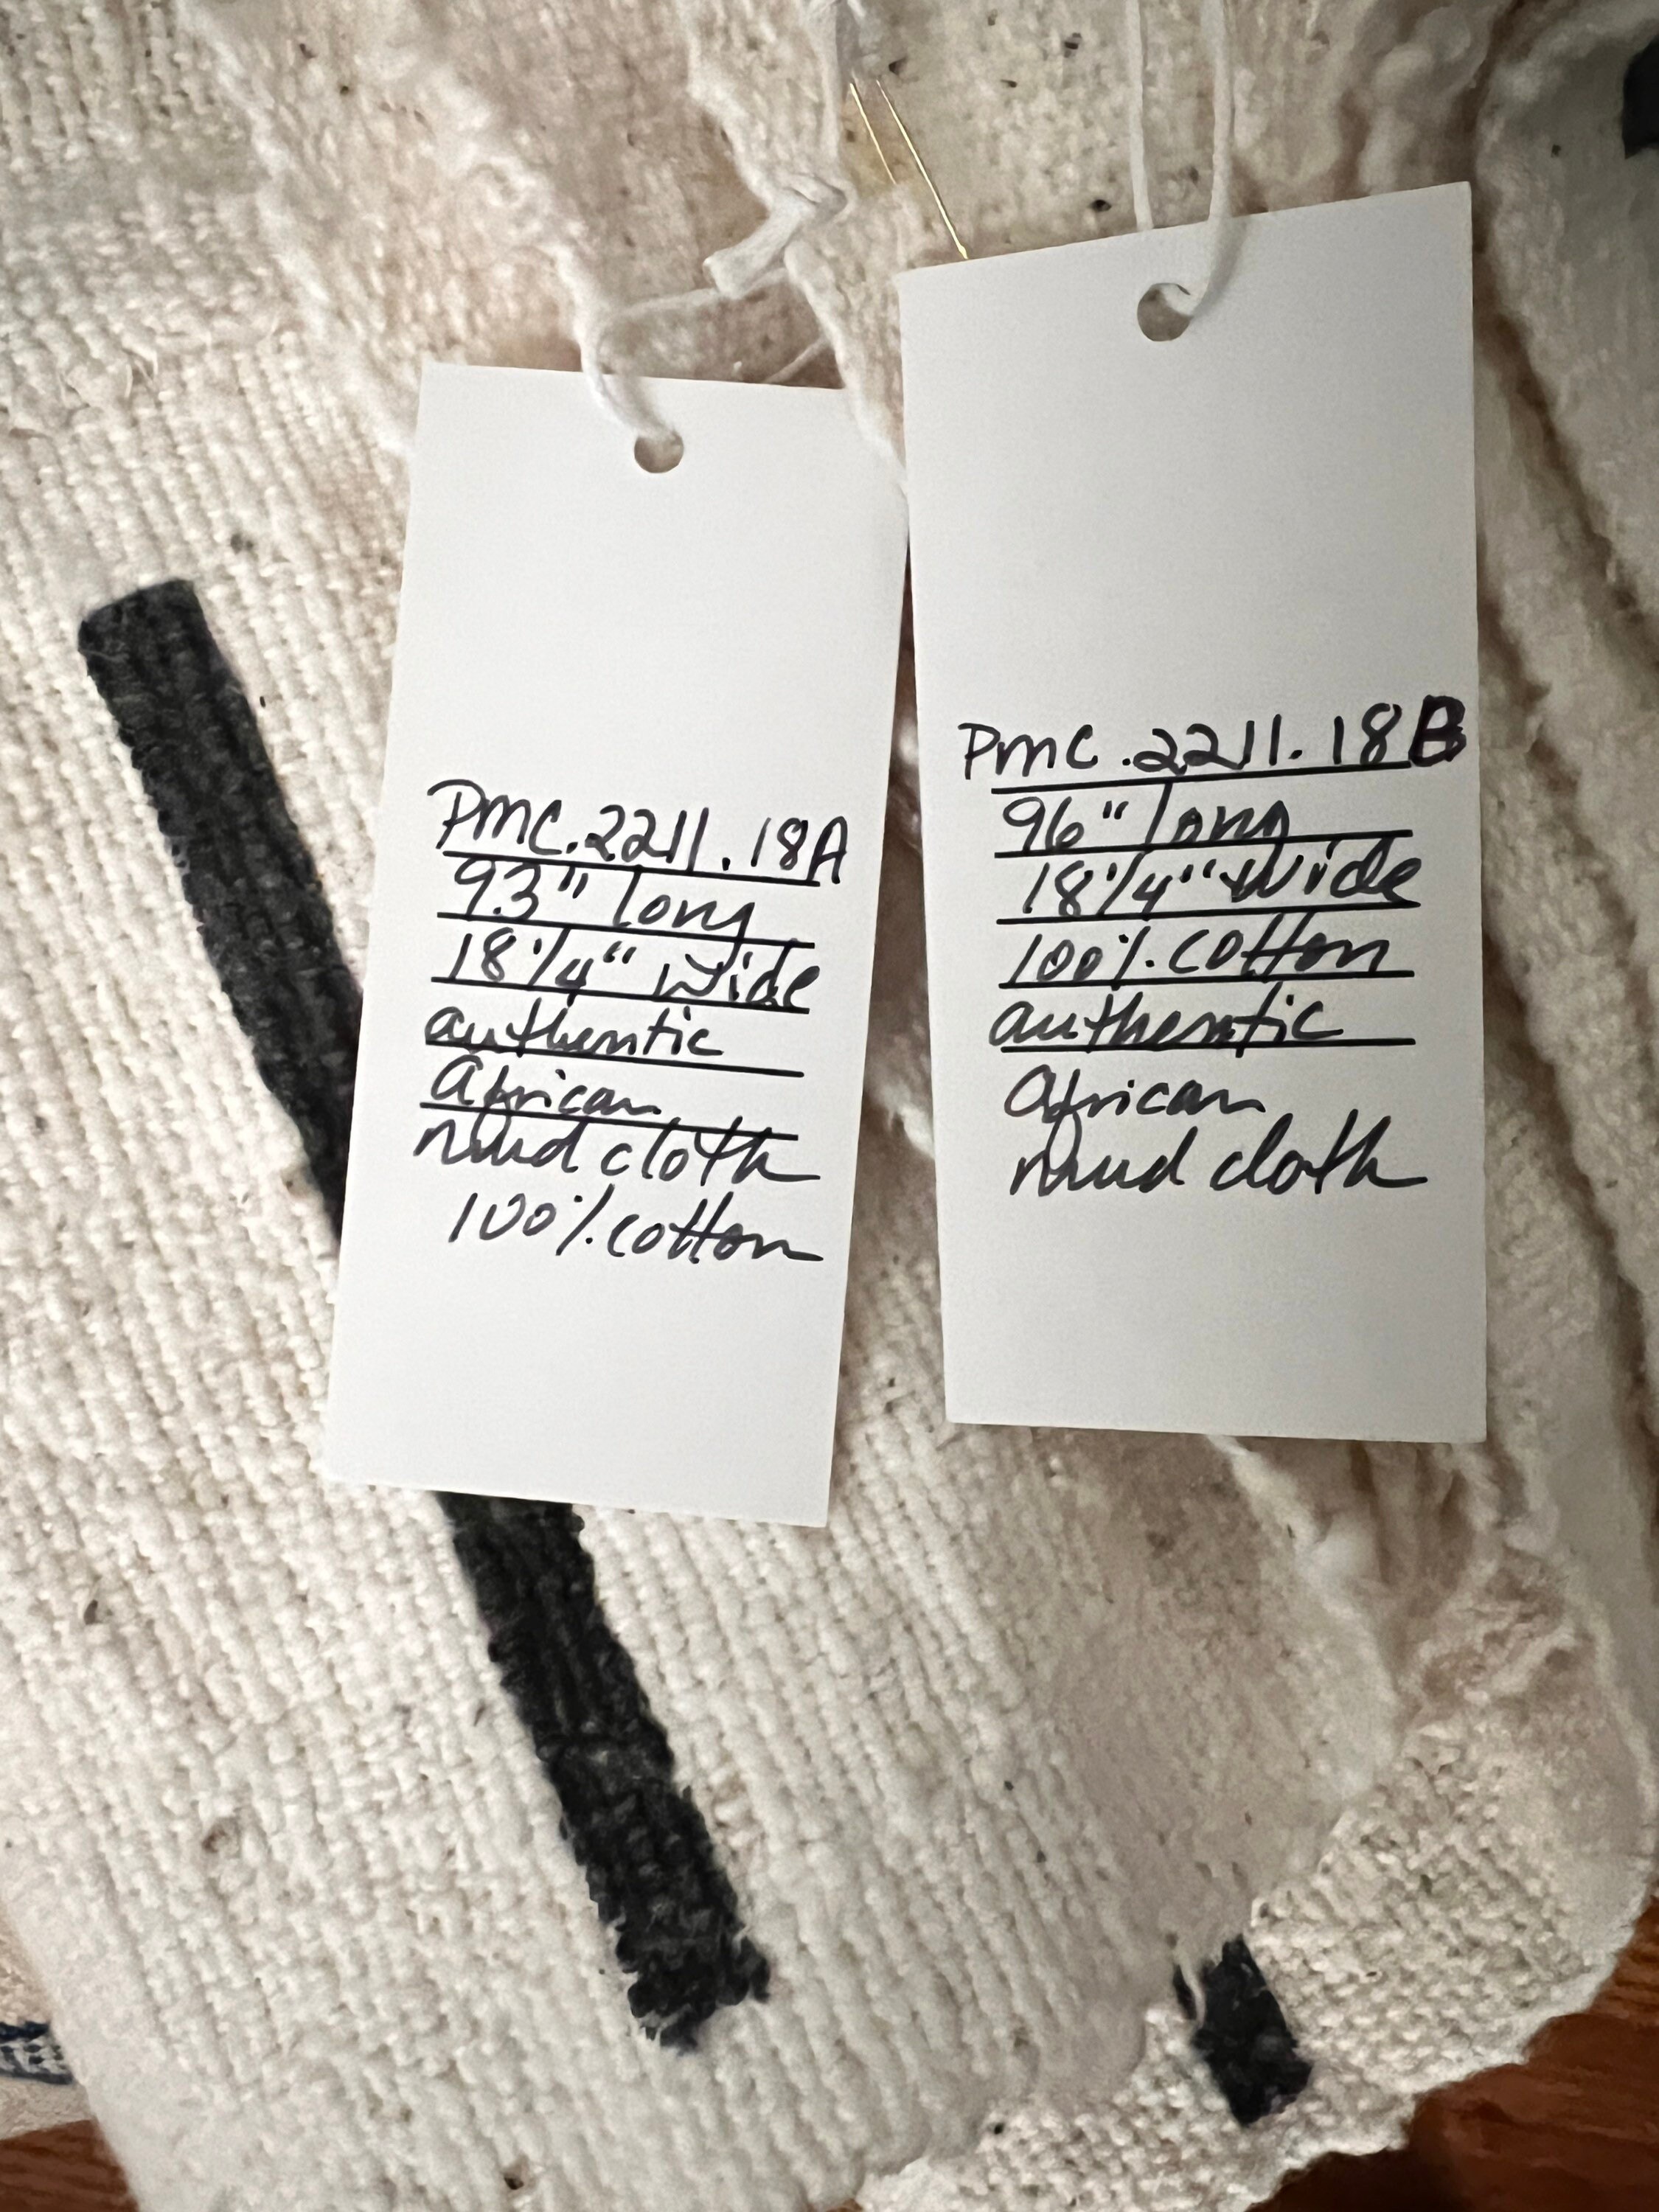 PMC.2211.18A
93" long
18 1/4" wide
authentic
African
mud cloth
100% cotton
PMC.2211.18B
96" long
18 1/4" wide
100% cotton
authentic
African
mud cloth